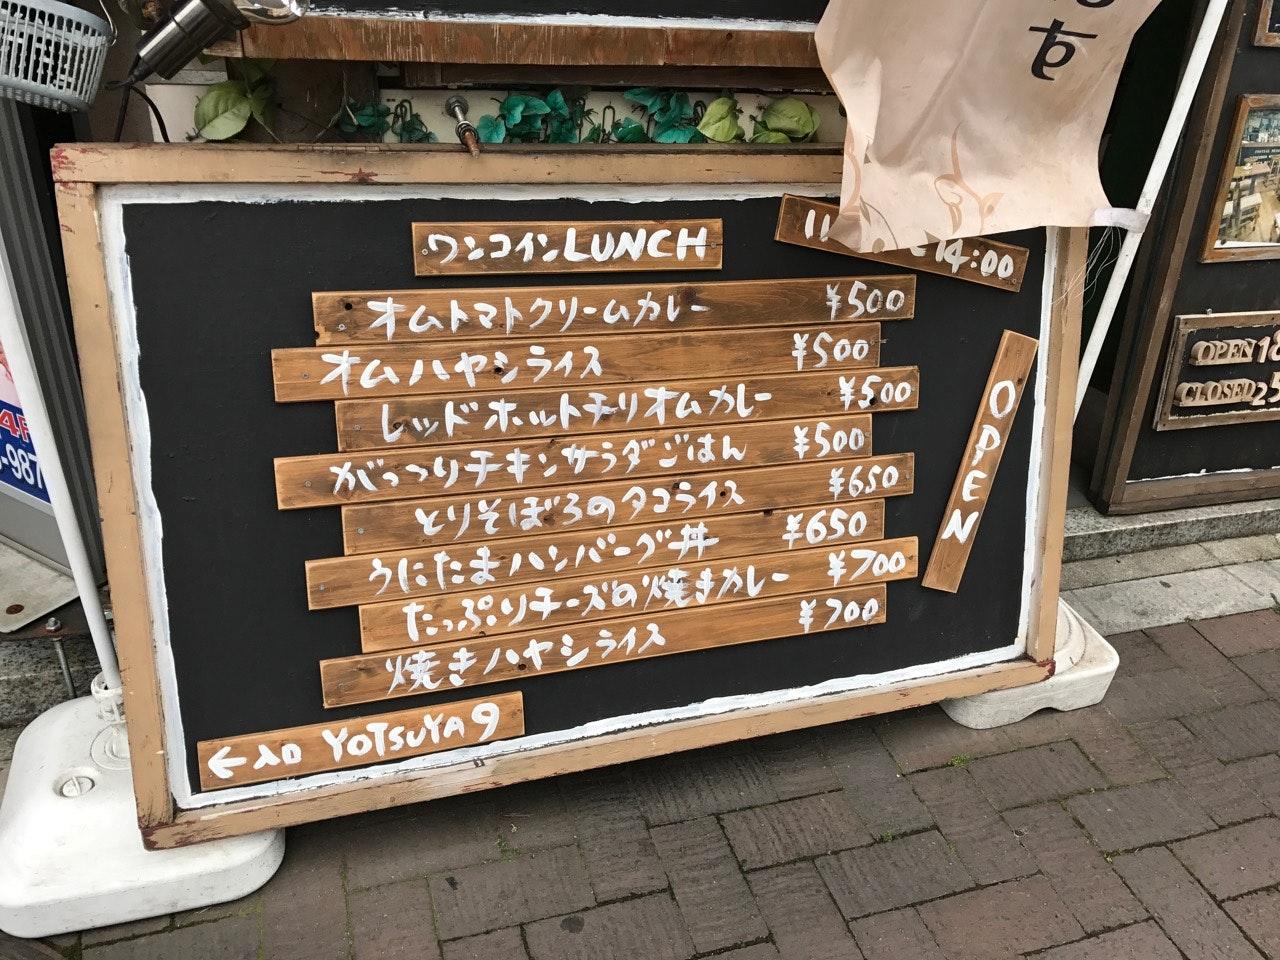 す
ワンコインLUNCH
14:00
オムトマトクリームカレー ¥500
オムハヤシライス ¥500
レッドホットチリオムカレー ¥500
がっつりチキンサラダごはん ¥500
とりそぼろのタコライス ¥650
うにたまハンバーグ丼 ¥650
たっぷりチーズの焼きカレー ¥700
焼きハヤシライス ¥700
OPEN
←入口 YOTSUYA9
OPEN18
CLOSED25
4F
-987